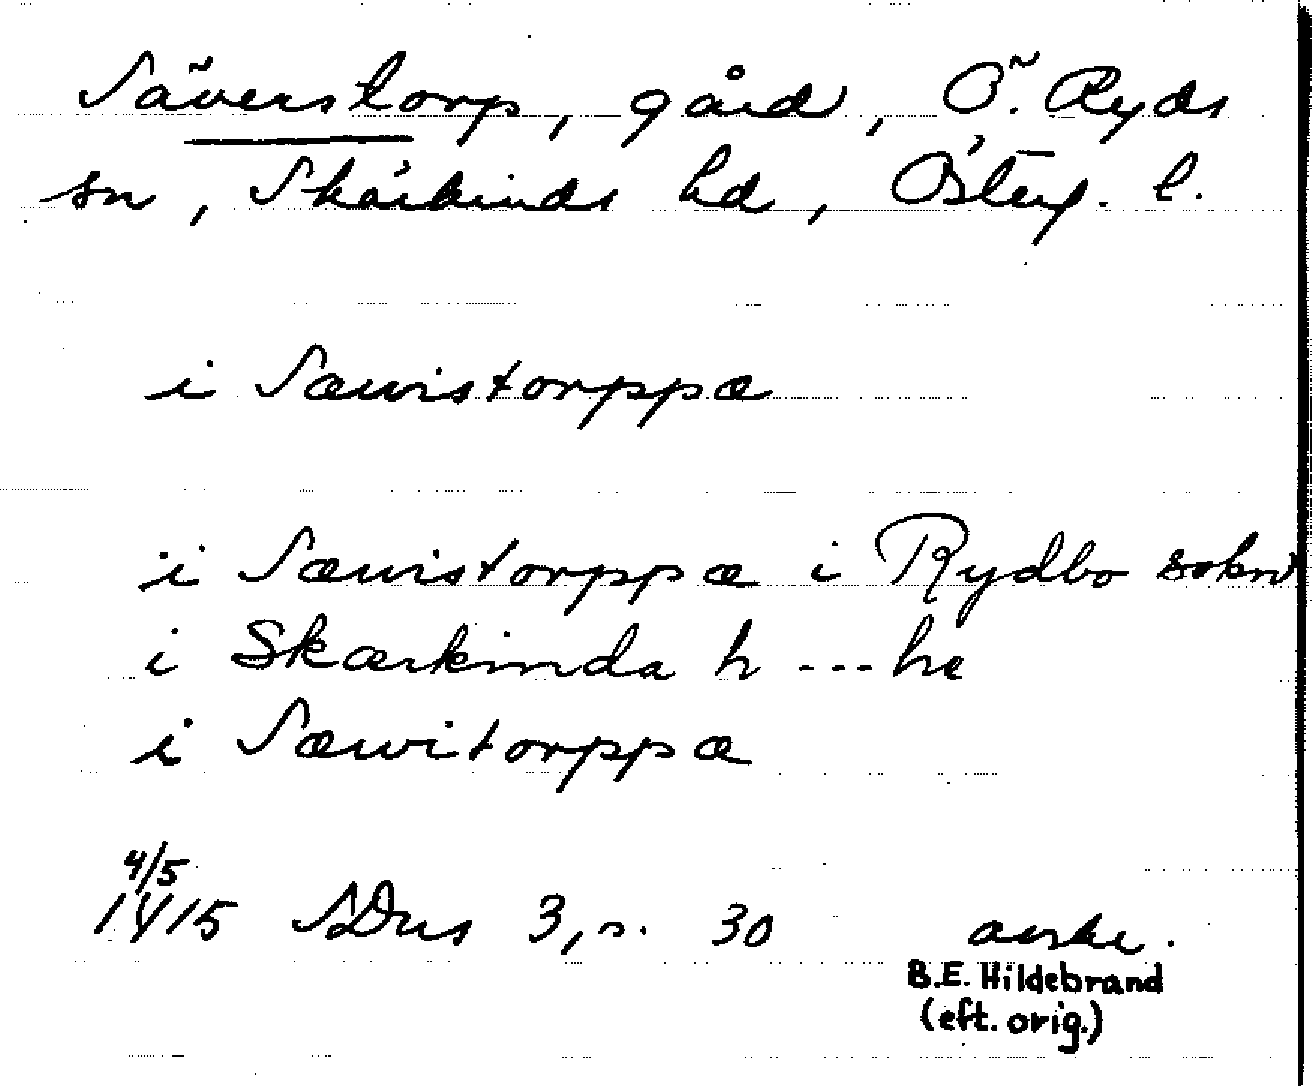 Säverstorp, gård, Ö. Ryds
sn, Skärkinds hd, Österg. l.
i Sæwistorppæ
i Sæwistorppæ i Rydbo sokn
i Skærkinda h ---he
i Sæwitorppæ
4/5
1415 SDns 3, s. 30 avskr.
B.E. Hildebrand
(eft. orig.)